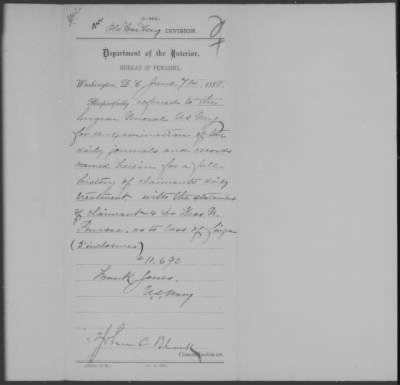 Old War Navy DIVISION.
Department of the Interior,
BUREAU OF PENSIONS,
Washington, D. C., June 7th, 188
Respectfully referred to the
Surgeon General U.S. Navy
for an examination of the
daily journals and records
named herein for a full
history of claimants daily
treatment with the statements
of claimant & Dr Thos. N.
Penrose, as to loss of finger
(5 inclosures)
11.690
Frank Jones.
U.S. Navy
John C. Black
Commissioner.